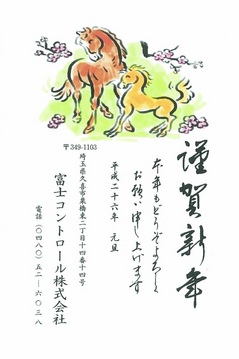 謹賀新年
本年もどうぞよろしく
お願い申し上げます
平成二十六年　元旦
〒349-1103
埼玉県久喜市栗橋東二丁目十四番十四号
富士コントロール株式会社
電話　(〇四八〇)五二―六〇三八